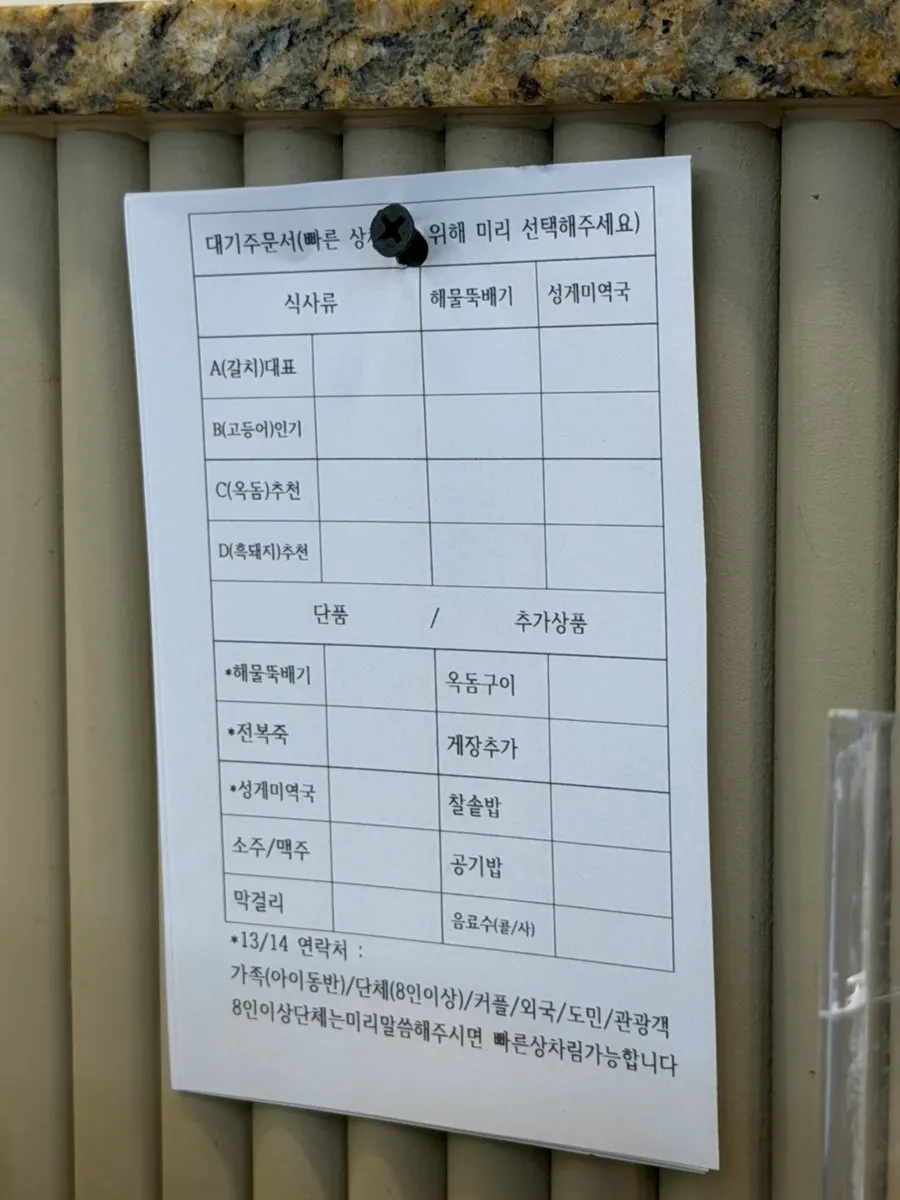 대기주문서(빠른 위해 미리 선택해주세요)
식사류 해물뚝배기 성게미역국
A(갈치)대표
B(고등어)인기
C(옥돔)추천
D(흑돼지)추천
단품 / 추가상품
*해물뚝배기 옥돔구이
*전복죽 게장추가
*성게미역국 찰솥밥
소주/맥주 공기밥
막걸리 음료수(콜/사)
*13/14 연락처 :
가족(아이동반)/단체(8인이상)/커플/외국/도민/관광객
8인이상단체는미리말씀해주시면 빠른상차림가능합니다